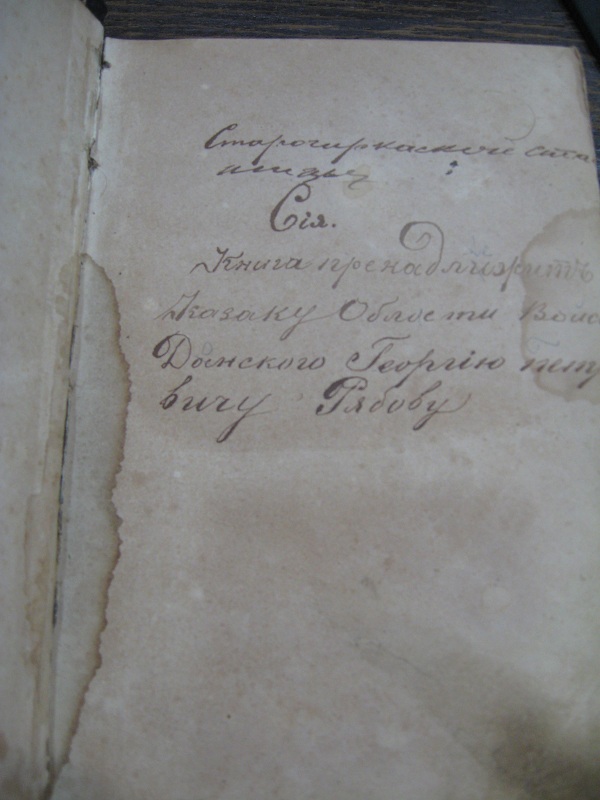 Старочеркаской ста
ницы :
Сія.
Книга пренадлижитъ
Казаку Области Войс
Донского Георгію пет
вичу Рябову